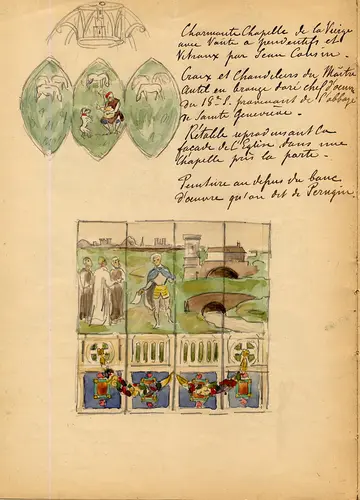 Charmante Chapelle de la Vierge
avec Voûte à pendentifs et
Vitraux par Jean Cousin.
Croix et Chandeliers du Maître
Autel en bronze doré chef d'œuvre
du 18e S. provenant de l'abbaye
de Sainte Geneviève.
Rétable reproduisant la
façade de l'Eglise, dans une
Chapelle près la porte.
Peinture au dessus du banc
d'œuvre qu'on dit de Perugin.